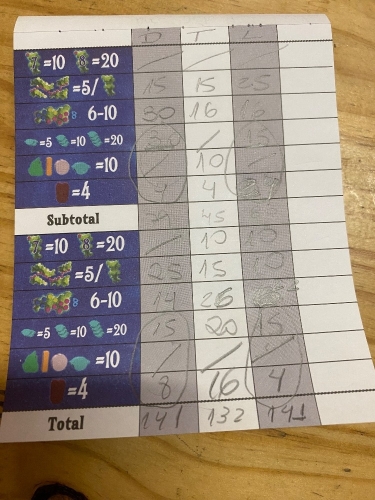 D T L
=10 =20 / /
=5/ 15 15 25
8 6-10 30 16 16
=5 =10 =20 / 15
=10 / 10 /
=4 4 4
Subtotal 45
=10 =20 / 10 10
=5/ 25 15 10
8 6-10 14 26
=5 =10 =20 15 20 15
=10 / / /
=4 8 16 4
Total 141 132 141